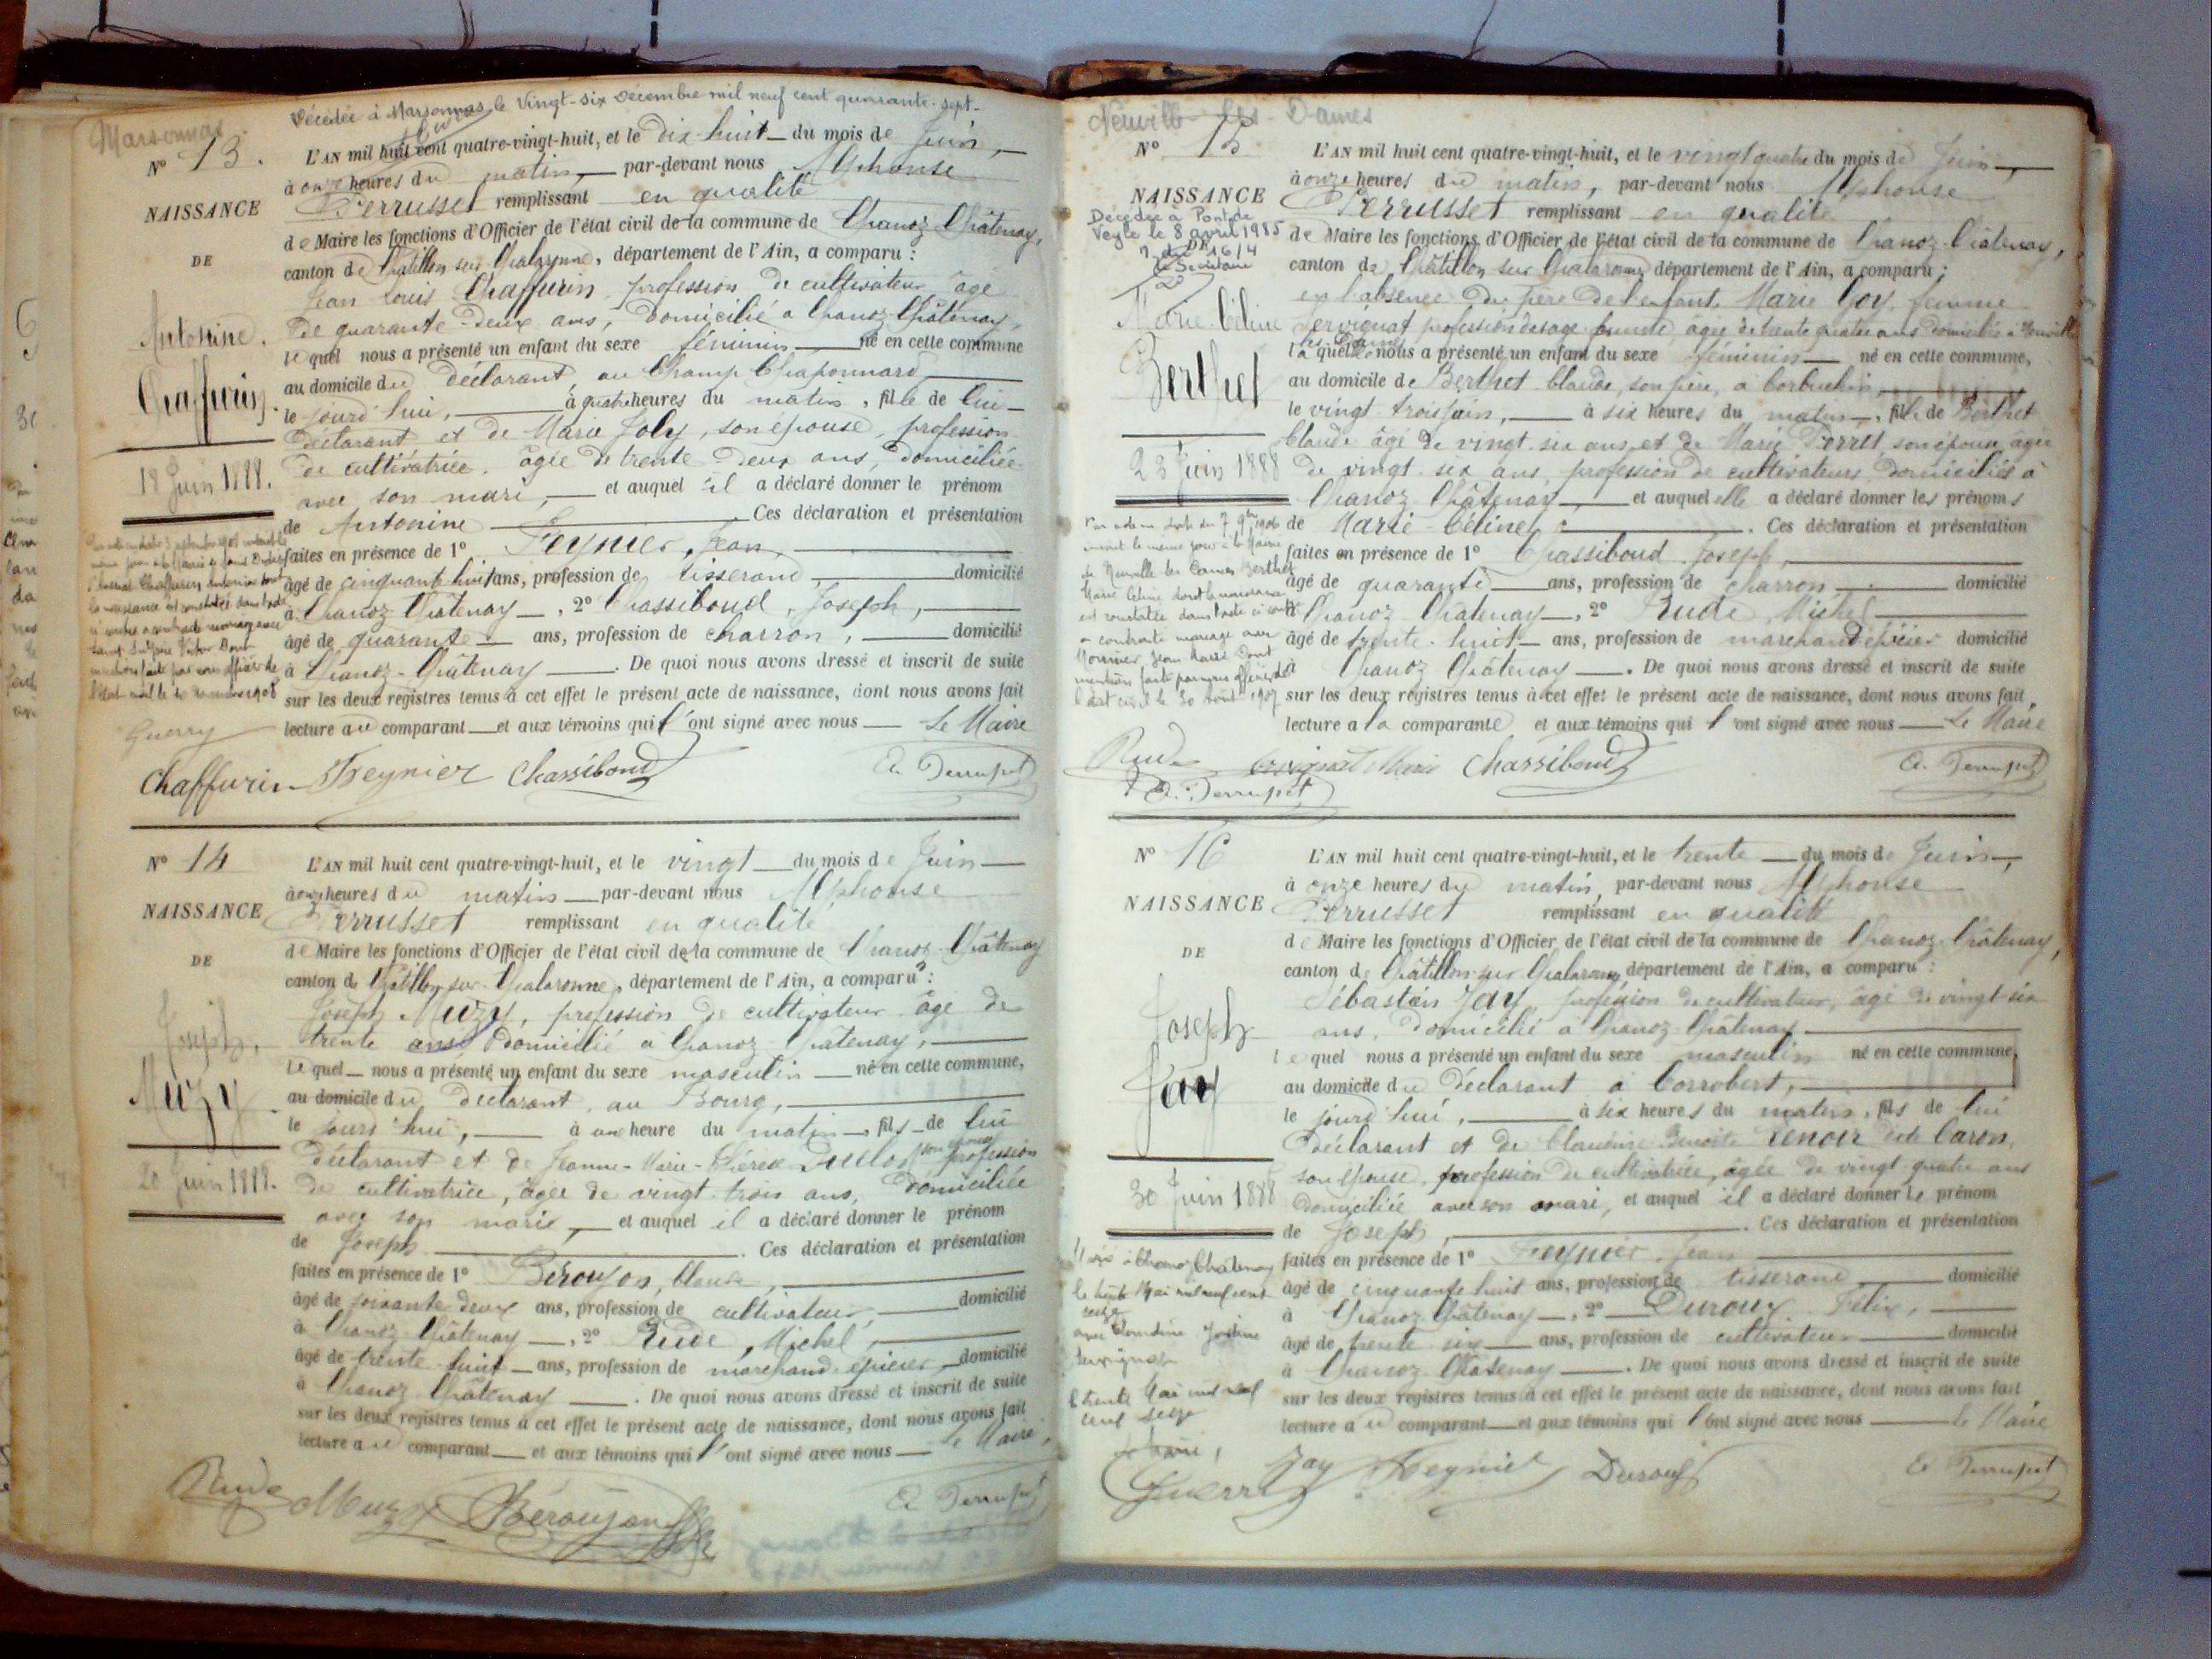 Décédée à Marsonnas le Vingt-six Décembre mil neuf cent quarante-sept
Marsonnas
N° 13.
NAISSANCE
DE
Antonine
Chaffurin
18 Juin 1888.
L'AN mil huit cent quatre-vingt-huit, et le dix-huit du mois de Juin,
à onze heures du matin, par-devant nous Alphonse
Perrusset remplissant en qualité
de Maire les fonctions d'Officier de l'état civil de la commune de Chanoz-Châtenay,
canton de Châtillon sur Chalaronne, département de l'Ain, a comparu :
Jean Louis Chaffurin, profession de cultivateur âgé
de quarante-deux ans, domicilié à Chanoz-Châtenay,
lequel nous a présenté un enfant du sexe féminin né en cette commune
au domicile du déclarant, au Champ Chaponnard
le jourd'hui, à quatre heures du matin, fille de lui
déclarant et de Marie Joly, son épouse, profession
de cultivatrice, âgée de trente-deux ans, domiciliée
avec son mari, et auquel il a déclaré donner le prénom
de Antonine Ces déclaration et présentation
faites en présence de 1° Feynier, Jean,
âgé de cinquante huit ans, profession de tisserand, domicilié
à Chanoz-Châtenay, 2° Chassiboud, Joseph,
âgé de quarante ans, profession de charron, domicilié
à Chanoz-Châtenay. De quoi nous avons dressé et inscrit de suite
sur les deux registres tenus à cet effet le présent acte de naissance, dont nous avons fait
lecture au comparant et aux témoins qui l'ont signé avec nous Le Maire
Guerry
Chaffurin Feynier Chassiboud A. Perrusset
N° 14
NAISSANCE
DE
Joseph,
Muzy
20 Juin 1888.
L'AN mil huit cent quatre-vingt-huit, et le vingt du mois de Juin
à onze heures du matin par-devant nous Alphonse
Perrusset remplissant en qualité
de Maire les fonctions d'Officier de l'état civil de la commune de Chanoz-Châtenay
canton de Châtillon sur Chalaronne, département de l'Ain, a comparu :
Joseph Muzy, profession de cultivateur âgé de
trente ans domicilié à Chanoz-Châtenay,
Lequel nous a présenté un enfant du sexe masculin né en cette commune,
au domicile du déclarant, au Bourg,
le jourd'hui, à une heure du matin, fils de lui
déclarant et de Jeanne-Marie-Thérèse son épouse profession
de cultivatrice, âgée de vingt-trois ans, domiciliée
avec son mari, et auquel il a déclaré donner le prénom
de Joseph. Ces déclaration et présentation
faites en présence de 1° Béroujon, Claude,
âgé de soixante-deux ans, profession de cultivateur, domicilié
à Chanoz-Châtenay, 2° Rude, Michel,
âgé de trente-huit ans, profession de marchand épicier domicilié
à Chanoz-Châtenay. De quoi nous avons dressé et inscrit de suite
sur les deux registres tenus à cet effet le présent acte de naissance, dont nous avons fait
lecture au comparant et aux témoins qui l'ont signé avec nous Le Maire,
Rude Muzy Béroujon A. Perrusset
Neuville-les-Dames
N° 15
NAISSANCE
Décédée à Pont de
Veyle le 8 avril 1985
Le Secrétaire
Marie-Céline
Berthet
23 Juin 1888
L'AN mil huit cent quatre-vingt-huit, et le vingt quatre du mois de Juin,
à onze heures du matin, par-devant nous Alphonse
Perrusset remplissant en qualité
de Maire les fonctions d'Officier de l'état civil de la commune de Chanoz-Châtenay,
canton de Châtillon sur Chalaronne département de l'Ain, a comparu :
en l'absence du père de l'enfant, Marie Goy, femme
Servignat profession de sage-femme, âgée de trente quatre ans domiciliée à Neuville
les Dames
laquelle nous a présenté un enfant du sexe féminin né en cette commune,
au domicile de Berthet Claude, son père, à
le vingt trois juin, à six heures du matin, fille de Berthet
Claude âgé de vingt-six ans, et de Marie Perret, son épouse, âgée
de vingt-six ans, profession de cultivateurs, domiciliés à
Chanoz-Châtenay et auquel elle a déclaré donner les prénoms
de Marie-Céline. Ces déclaration et présentation
faites en présence de 1° Chassiboud Joseph,
âgé de quarante ans, profession de charron domicilié
à Chanoz-Châtenay, 2° Rude, Michel
âgé de trente-huit ans, profession de marchand épicier domicilié
à Chanoz-Châtenay. De quoi nous avons dressé et inscrit de suite
sur les deux registres tenus à cet effet le présent acte de naissance, dont nous avons fait
lecture à la comparante et aux témoins qui l'ont signé avec nous Le Maire
Rude Servignat Marie Chassiboud A. Perrusset
A. Perrusset
N° 16
NAISSANCE
DE
Joseph
Jay
30 Juin 1888
L'AN mil huit cent quatre-vingt-huit, et le trente du mois de Juin,
à onze heures du matin, par-devant nous Alphonse
Perrusset remplissant en qualité
de Maire les fonctions d'Officier de l'état civil de la commune de Chanoz-Châtenay,
canton de Châtillon-sur Chalaronne, département de l'Ain, a comparu :
Sébastien Jay, profession de cultivateur, âgé de vingt-six
ans, domicilié à Chanoz-Châtenay
lequel nous a présenté un enfant du sexe masculin né en cette commune,
au domicile du déclarant à Corrobert,
le jourd'hui, à six heures du matin, fils de lui
déclarant et de Claudine Benoite Renoir dite Caron,
son épouse, profession de cultivatrice, âgée de vingt-quatre ans
domiciliée avec son mari, et auquel il a déclaré donner le prénom
de Joseph, Ces déclaration et présentation
faites en présence de 1° Feynier, Jean
âgé de cinquante huit ans, profession de tisserand domicilié
à Chanoz-Châtenay, 2° Duroux Félix,
âgé de trente six ans, profession de cultivateur domicilié
à Chanoz-Châtenay. De quoi nous avons dressé et inscrit de suite
sur les deux registres tenus à cet effet le présent acte de naissance, dont nous avons fait
lecture au comparant et aux témoins qui l'ont signé avec nous Le Maire
le trente Mai mil neuf
cent seize
Le Maire,
Guerry Jay Feynier Duroux A. Perrusset